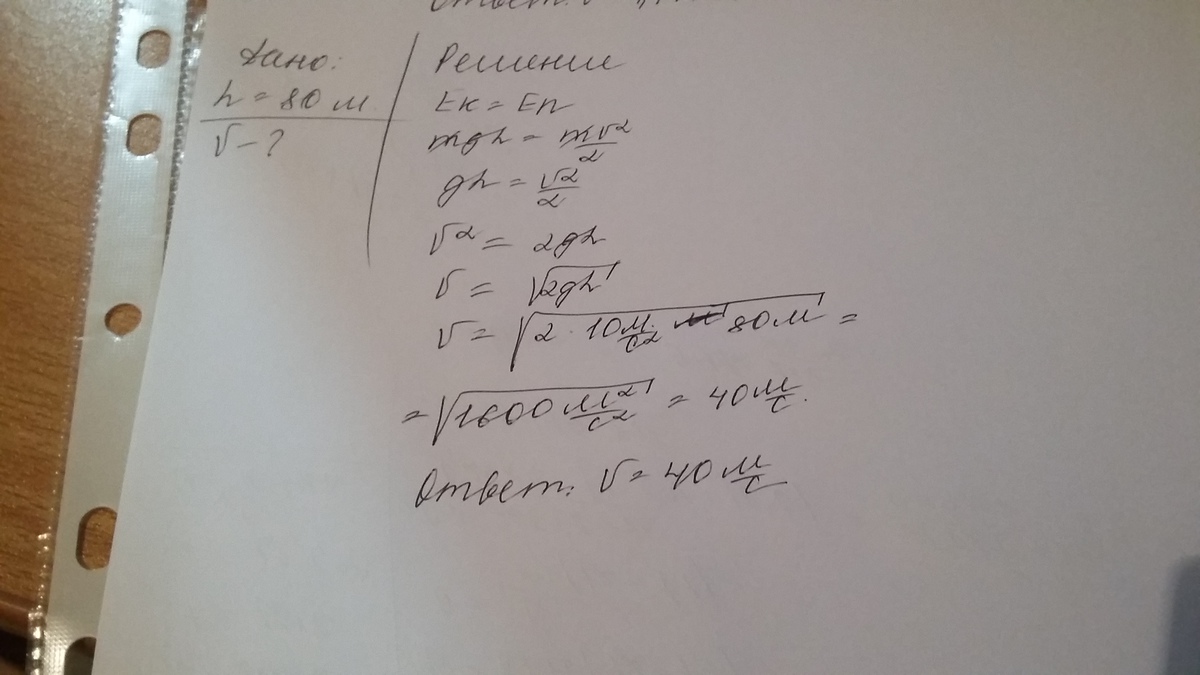 Дано:
h = 80 м.
v - ?
Решение
Eк = Eп
mgh = mv²/2
gh = v²/2
v² = 2gh
v = √2gh
v = √2 · 10 м/с² 80 м =
= √1600 м²/с² = 40 м/с.
Ответ: v = 40 м/с